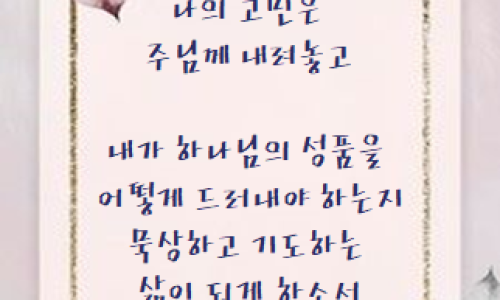 나의 고민은
주님께 내려놓고
내가 하나님의 성품을
어떻게 드러내야 하는지
묵상하고 기도하는
삶이 되게 하소서